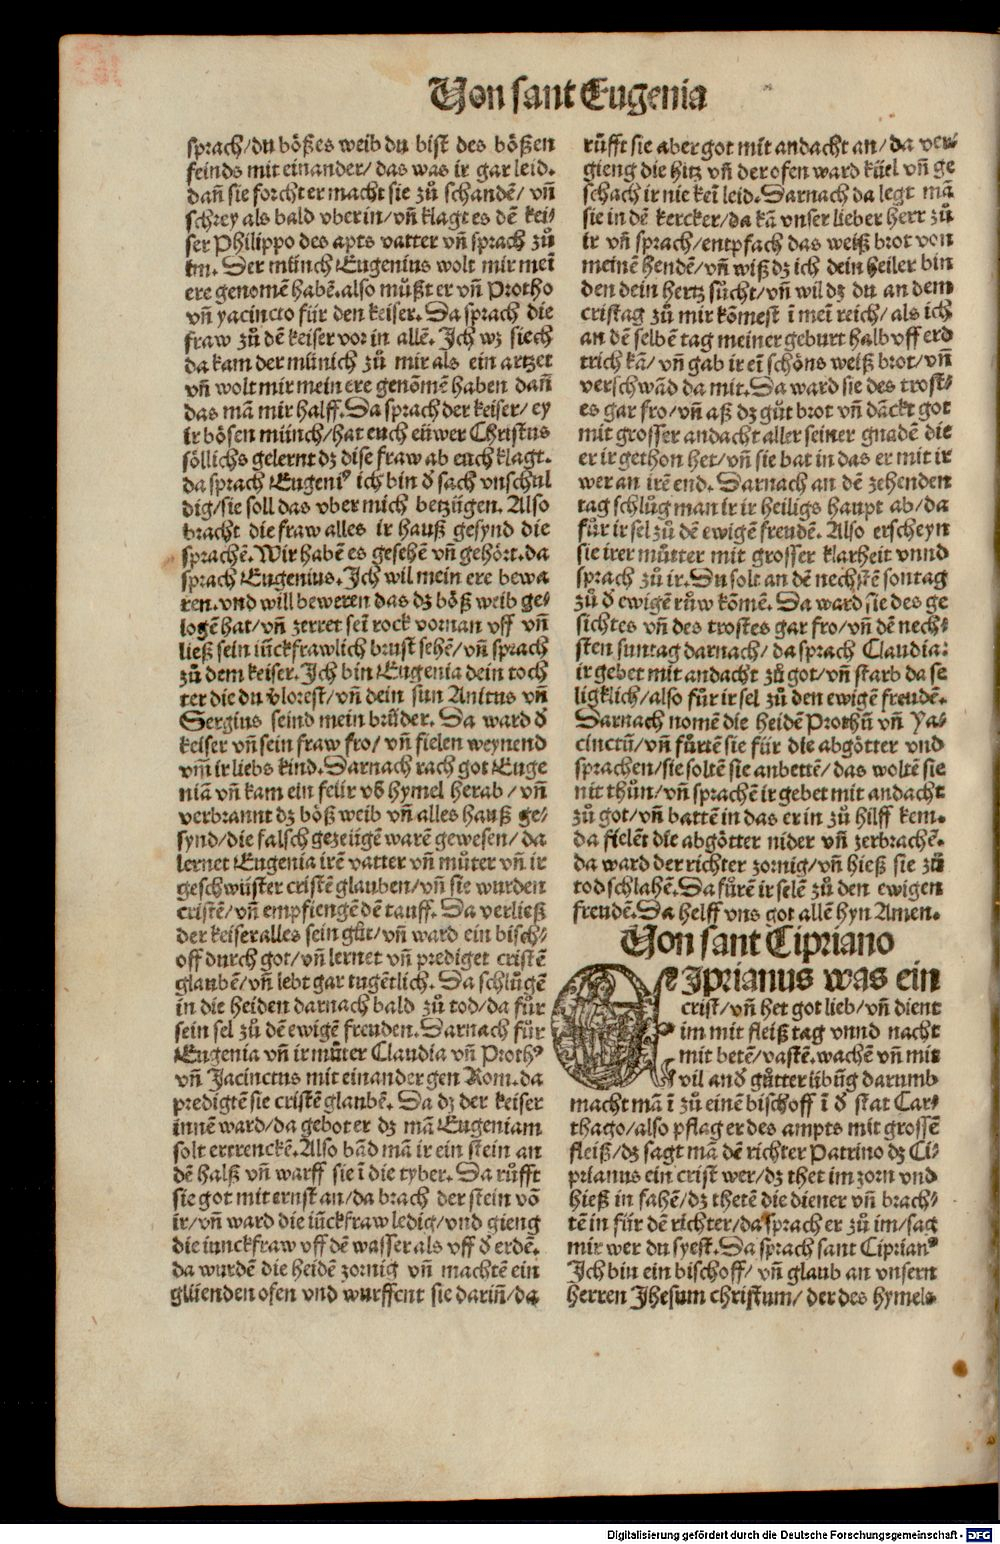 Von sant Eugenia
sprach/du bößes weib du bist des bößen
feinds mit einander/ das was ir gar leid.
dañ sie forcht er macht sie zů schandē/ vñ
schrey als bald vber in/vñ klagt es dē kei⸗
ser Philippo des apts vatter vñ sprach zů
im. Der münch Eugenius wolt mir meī
ere genomē habē.also můßt er vñ Protho
vñ yacincto für den keiser. Da sprach die
fraw zů dē keiser vor in allē. Ich wz siech
da kam der münich zů mir als ein artzet
vñ wolt mir mein ere genōmē haben dañ
das mā mir halff. Da sprach der keiser/ ey
ir bösen münch/hat euch eüwer Christus
söllichs gelernt dz dise fraw ab euch klagt.
da sprach Eugeniꝰ ich bin đ sach vnschul
dig/sie soll das vber mich betzügen. Also
bracht die fraw alles ir hauß gesynd die
sprachē. Wir habē es gesehē vñ gehört.da
sprach Eugenius. Ich wil mein ere bewa
ren.vnd will beweren das dz böß weib ge⸗
logē hat/vñ zerret seī rock vornan vff vñ
ließ sein iūckfrawlich brust sehē/vñ sprach
zů dem keiser. Ich bin Eugenia dein toch
ter die du vlorest/vñ dein sun Anitus vñ
Sergius seind mein brůder. Da ward đ
keiser vñ sein fraw fro/ vñ fielen weynend
vm̄ ir liebs kind. Darnach rach got Euge
niā vñ kam ein feür vō hymel herab/ vñ
verbrannt dz böß weib vñ alles hauß ge⸗
synd/die falsch gezeügē warē gewesen/ da
lernet Eugenia irē vatter vñ můter vñ ir
geschwüster cristē glauben/vñ sie wurden
cristē/ vñ empfiengē dē tauff. Da verließ
der keiser alles sein gůt/vñ ward ein bisch⸗
off durch got/vñ lernet vñ prediget cristē
glaubē/vñ lebt gar tugētlich. Da schlůgē
in die heiden darnach bald zů tod/da für
sein sel zů dē ewigē freuden. Darnach für
Eugenia vñ ir můter Claudia vñ Prothꝰ
vñ Jacinctus mit einander gen Rom.da
predigtē sie cristē glaubē. Da dz der keiser
innē ward/da gebot er dz mā Eugeniam
solt ertrenckē. Also bād mā ir ein stein an
dē halß vñ warff sie ī die tyber. Da růfft
sie got mit ernst an/da brach der stein vō
ir/vñ ward die iūckfraw ledig/vnd gieng
die iunckfraw vff dē wasser als vff đ erdē.
da wurdē die heidē zornig vñ machtē ein
glüenden ofen vnd wurffent sie dariñ/da
růfft sie aber got mit andacht an/da ver⸗
gieng die hitz vñ der ofen ward küel vñ ge
schach ir nie keī leid. Darnach da legt mā
sie in dē kercker/da kā vnser lieber herr zů
ir vñ sprach/entpfach das weiß brot von
meinē hendē/vñ wiß dz ich dein heiler bin
den dein hertz sůcht/vñ wil dz du an dem
cristag zů mir kōmest ī meī reich/ als ich
an dē selbē tag meiner geburt halb vff erd
trich kā/ vñ gab ir eī schöns weiß brot/vñ
verschwād da mit. Da ward sie des trost⸗
es gar fro/vñ aß dz gůt brot vñ dāckt got
mit grosser andacht aller seiner gnadē die
er ir gethon het/vñ sie bat in das er mit ir
wer an irē end. Darnach an dē zehenden
tag schlůg man ir ir heiligs haupt ab/da
für ir sel zů dē ewigē freudē. Also erscheyn
sie irer můtter mit grosser klarheit vnnd
sprach zů ir. Du solt an dē nechstē sontag
zů đ ewigē růw kōmē. Da ward sie des ge
sichtes vñ des trostes gar fro/vñ dē nech⸗
sten suntag darnach/da sprach Claudia:
ir gebet mit andacht zů got/vñ starb da se
ligklich/also für ir sel zů den ewigē freudē.
Darnach nomē die heidē Prothū vñ Ya⸗
cinctū/vñ fürtē sie für die abgötter vnd
sprachen/sie soltē sie anbettē/das woltē sie
nit thůn/vñ sprachē ir gebet mit andacht
zů got/vñ battē in das er in zů hilff kem.
da fielēt die abgötter nider vñ zerbrachē.
da ward der richter zornig/vñ hieß sie zů
tod schlahē. Da fürē ir selē zů den ewigen
freudē. Da helff vns got allē hyn Amen.
Von sant Cipriano
CIprianus was ein
crist/vñ het got lieb/vñ dient
im mit fleiß tag vnnd nacht
mit betē/vastē.wachē vñ mit
vil anđ gůtter übūg darumb
macht mā ī zů einē bischoff ī đ stat Car⸗
thago/also pflag er des ampts mit grossē
fleiß/dz sagt mā dē richter Patrino dz Ci⸗
prianus ein crist wer/dz thet im zorn vnd
hieß in fahē/dz thetē die diener vñ brach⸗
tē in für dē richter/da sprach er zů im/sag
mir wer du syest. Da sprach sant Ciprianꝰ
Ich bin ein bischoff/ vñ glaub an vnsern
herren Jhesum christum/ der des hymels
Digitalisierung gefördert durch die Deutsche Forschungsgemeinschaft - DFG